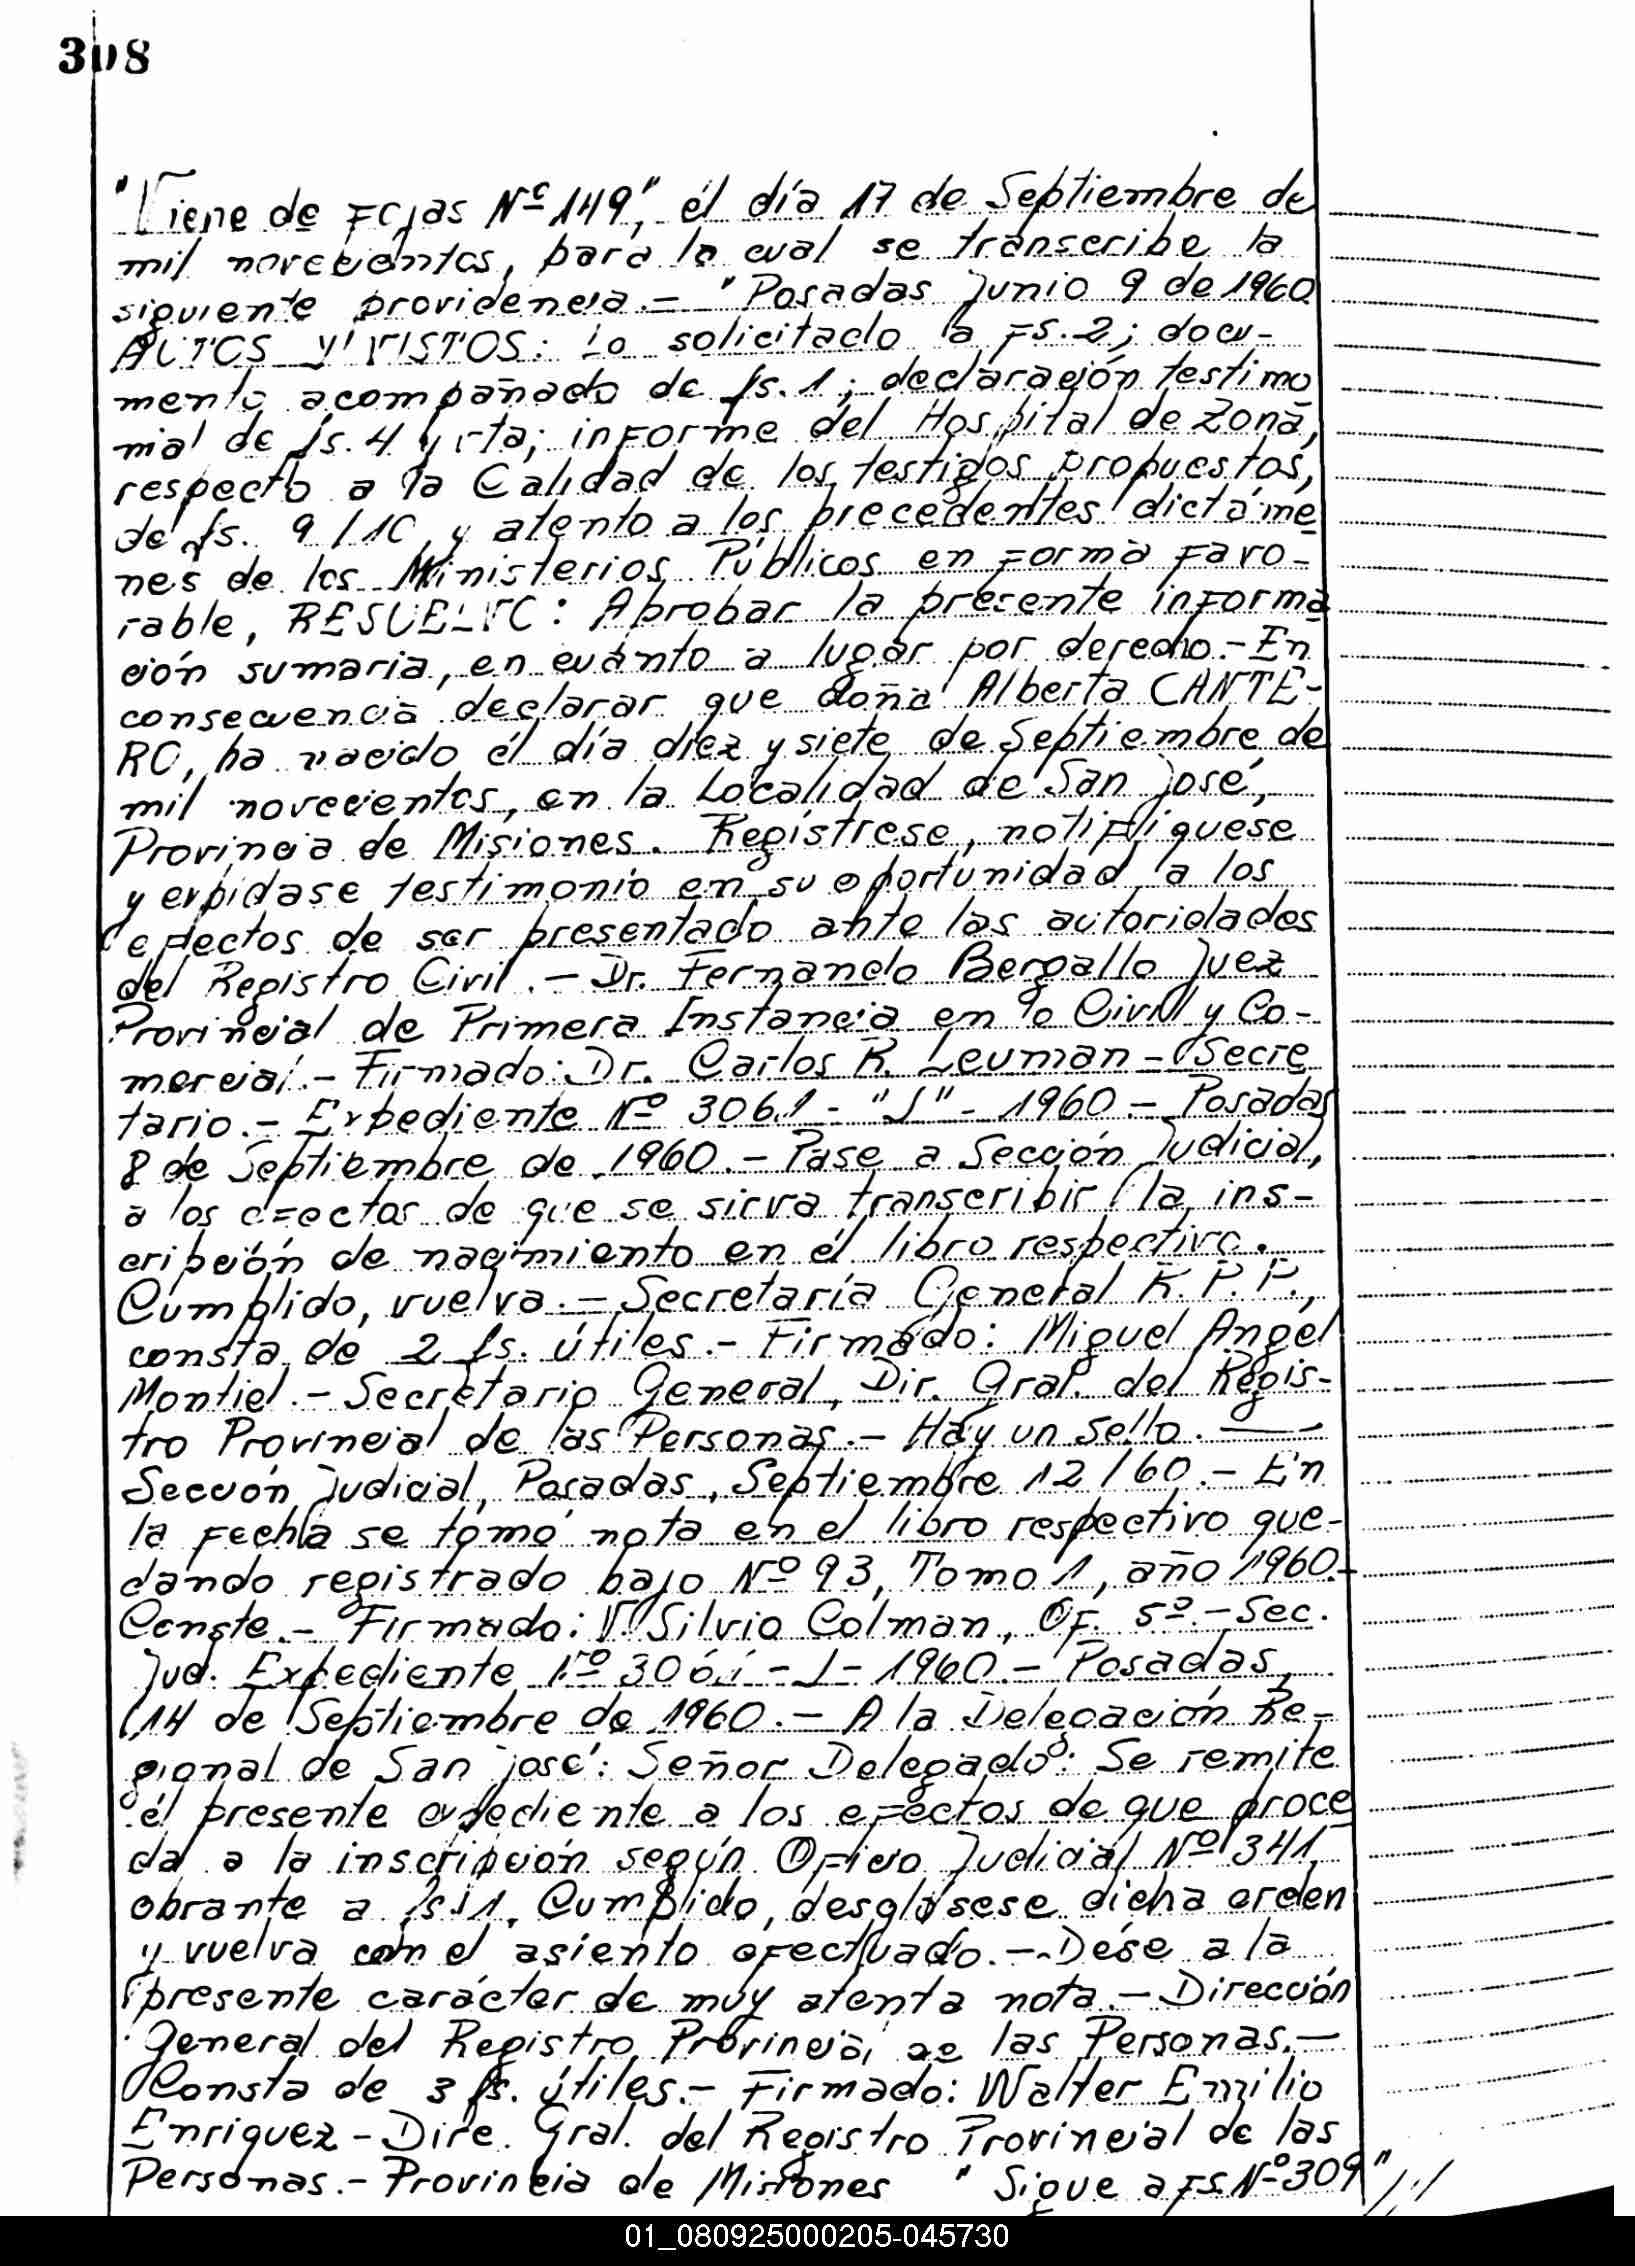 308
"Viene de Fojas Nº 149", él día 17 de Septiembre de
mil novecientos, para lo cual se transcribe la
siguiente providencia.- "Posadas Junio 9 de 1960
AUTOS Y VISTOS: Lo solicitado a Fs. 2; docu-
mento acompañado de fs. 1; declaración testimo
nial de fs. 4 y vta; informe del Hospital de Zona,
respecto a la Calidad de los testigos propuestos,
de fs. 9/10, y atento a los precedentes dictáme
nes de los Ministerios Públicos en Forma Favo-
rable, RESUELVO: Aprobar la presente informa
ción sumaria, en cuánto a lugar por derecho.- En
consecuencia declarar que doña Alberta CANTE-
RO, ha nacido él día diez y siete de Septiembre de
mil novecientos, en la Localidad de San José,
Provincia de Misiones. Regístrese, notifíquese
y expídase testimonio en su oportunidad a los
efectos de ser presentado ante las autoridades
del Registro Civil.- Dr. Fernando Bergallo Juez
Provincial de Primera Instancia en lo Civil y Co-
mercial.- Firmado: Dr. Carlos R. Leuman - Secre
tario.- Expediente Nº 3061 - "J" - 1960.- Posadas
8 de Septiembre de 1960.- Pase a Sección Judicial,
a los efectos de que se sirva transcribir la ins-
cripción de nacimiento en él libro respectivo.
Cumplido, vuelva.- Secretaría General R.P.P.,
consta de 2 fs. útiles.- Firmado: Miguel Angel
Montiel.- Secretario General, Dir. Gral. del Regis-
tro Provincial de las Personas.- Háy un sello.-
Sección Judicial, Posadas, Septiembre 12/60.- En
la Fecha se tómó nota en el libro respectivo que-
dando registrado bajo Nº 93, Tomo 1, año 1960.-
Conste.- Firmado: V. Silvio Colman, Of. 5º.- Sec.
Jud. Expediente Nº 3061 - J - 1960.- Posadas,
14 de Septiembre de 1960.- A la Delegación Re-
gional de San José: Señor Delegado: Se remite
él presente expediente a los efectos de que proce
da a la inscripción según Oficio Judicial Nº 341,
obrante a fs. 1. Cumplido, desglósese dicha orden
y vuelva con el asiento efectuado.- Dése a la
presente carácter de muy atenta nota.- Dirección
General del Registro Provincial de las Personas.-
Consta de 3 fs. útiles.- Firmado: Walter Emilio
Enriquez - Dire. Gral. del Registro Provincial de las
Personas.- Provincia de Misiones "Sigue a Fs. Nº 309"
01_080925000205-045730